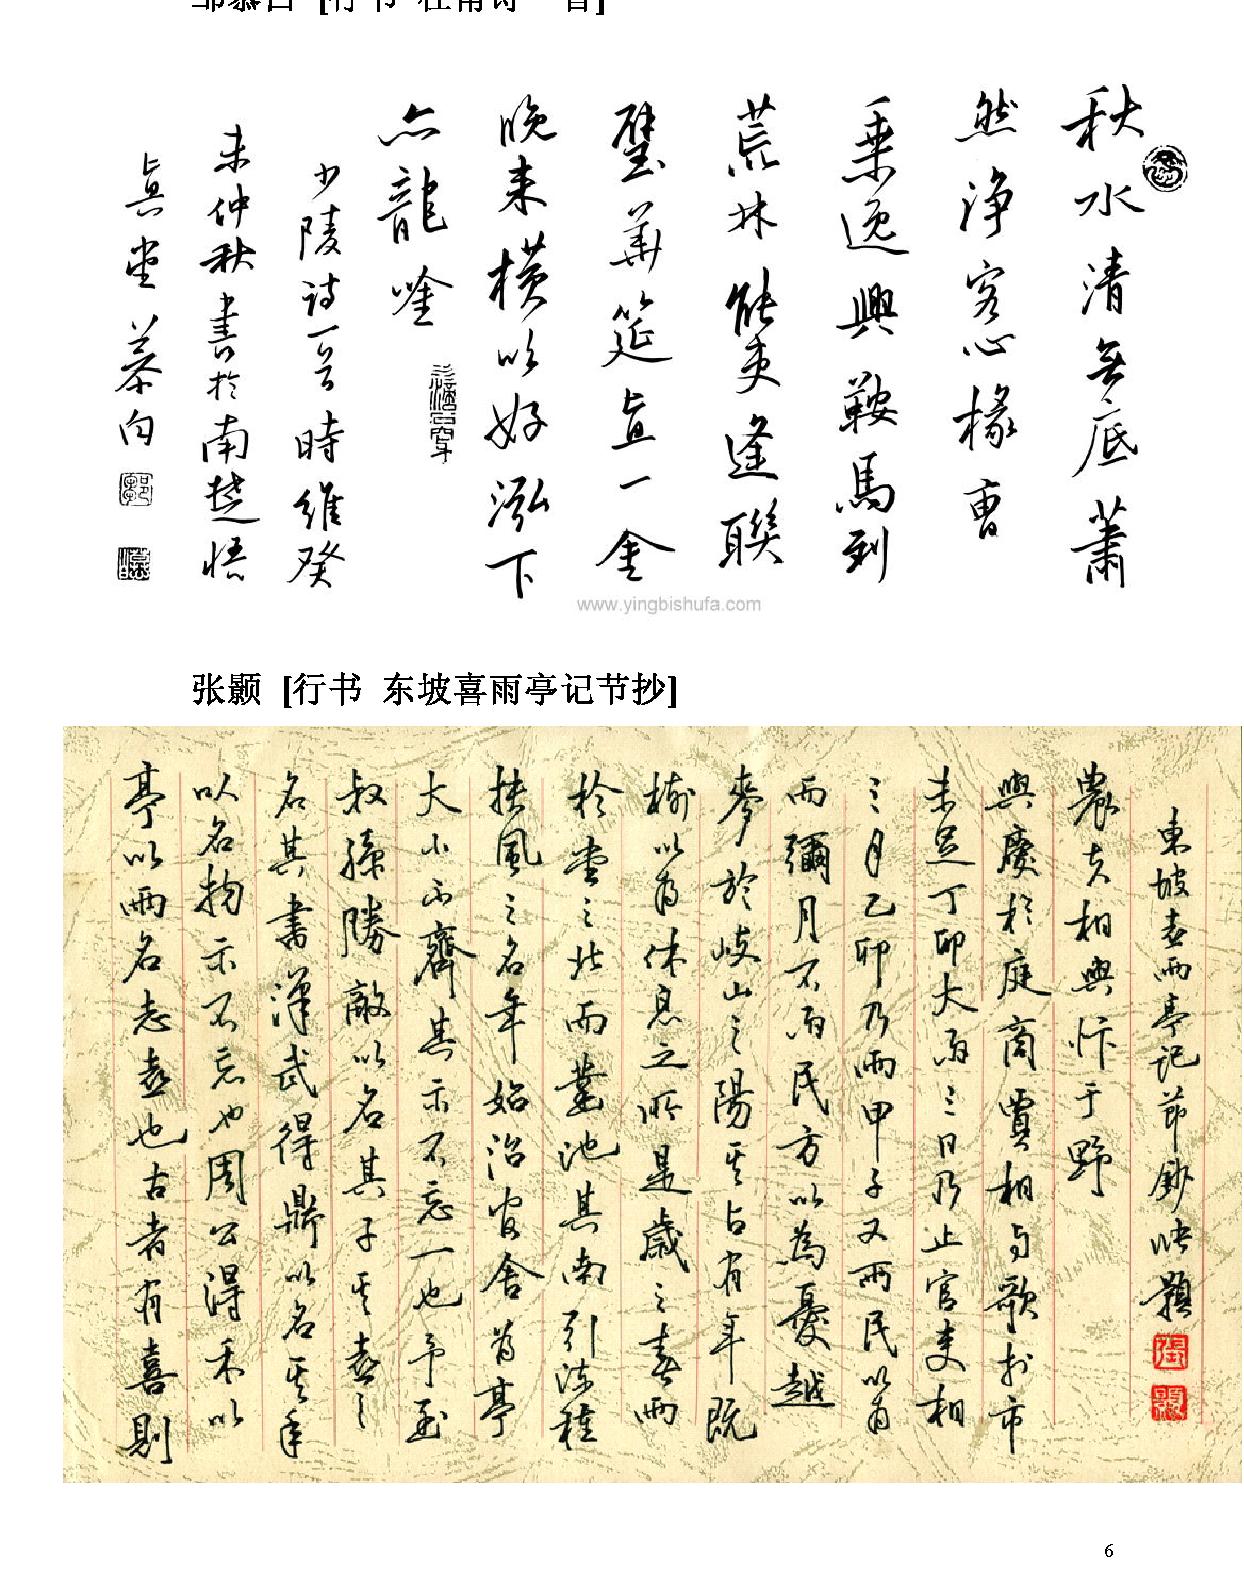 邹慕白 [行书 杜甫诗一首]
秋水清無底蕭
然淨客心掾曹
乘逸興鞍馬到
荒林能吏逢聯
璧華筵直一金
晚来橫吹好泓下
亦龍吟
少陵詩一首時維癸
未仲秋書於南楚悟
真堂慕白
www.yingbishufa.com
张颢 [行书 东坡喜雨亭记节抄]
亭以雨名志喜也古者有喜則
以名物示不忘也周公得禾以
名其書漢武得鼎以名其年
叔孫勝敵以名其子其喜之
大小不齊其示不忘一也予至
扶風之名年始治官舍為亭
於堂之北而鑿池其南引流種
樹以為休息之所是歲之春雨
麥於岐山之陽其占有年既
而彌月不雨民方以為憂越
三月乙卯乃雨甲子又雨民以為
未足丁卯大雨三日乃止官吏相
與慶於庭商賈相与歌於市
農夫相與忭于野
東坡喜雨亭記節鈔張顥
6